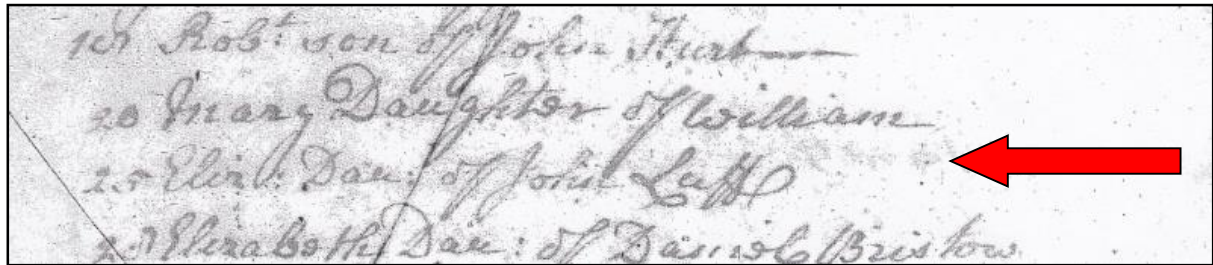 Rob.t son of John Hurt
20 Mary Daughter of William
25 Eliz. Dau: of John Laff
Elizabeth Dau: of Daniel Bristow